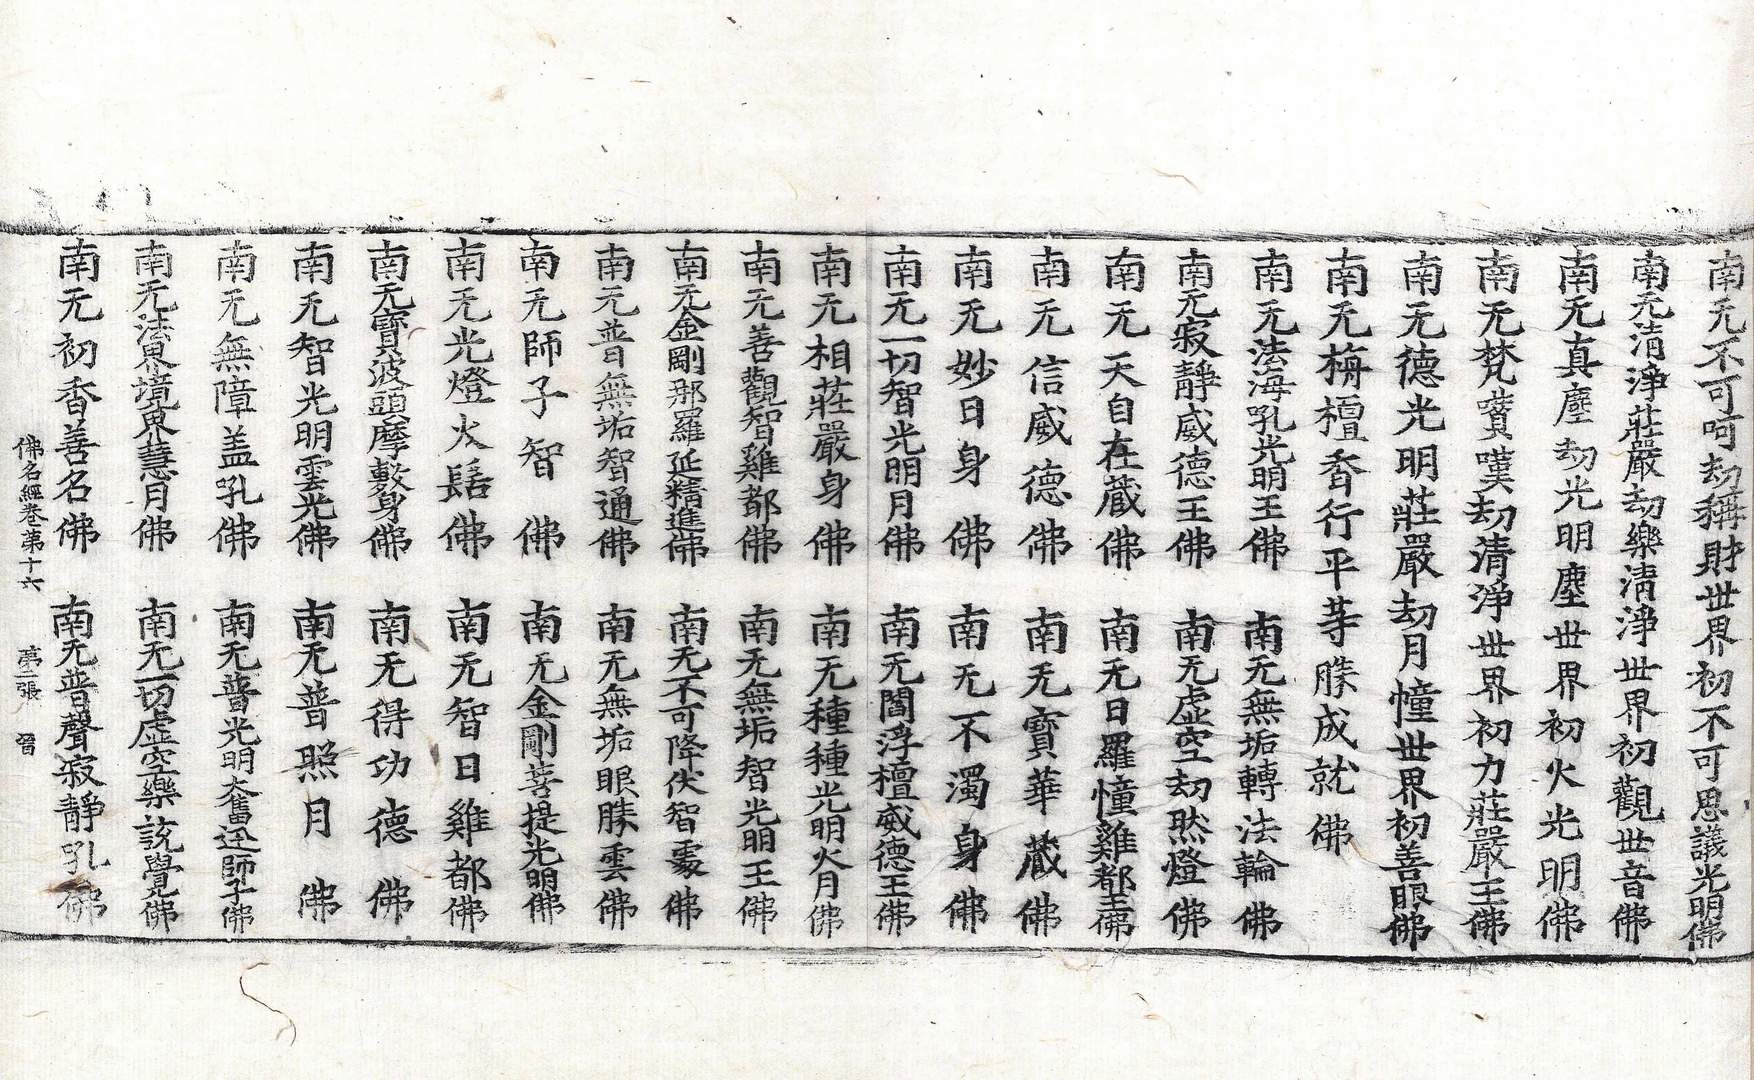 南无不可呵劫稱財世界初不可思議光明佛
南无清淨莊嚴劫樂清淨世界初觀世音佛
南无真塵劫光明塵世界初火光明佛
南无梵讃嘆劫清淨世界初力莊嚴王佛
南无德光明莊嚴劫月幢世界初善眼佛
南无栴檀香行平等勝成就佛
南无法海吼光明王佛　南无無垢轉法輪佛
南无寂靜威德王佛　南无虛空劫燃燈佛
南无天自在藏佛　南无日羅幢雞都王佛
南无信威德佛　南无寶華藏佛
南无妙日身佛　南无不濁身佛
南无一切智光明月佛　南无閻浮檀威德王佛
南无相莊嚴身佛　南无種種光明火月佛
南无善觀智雞都佛　南无無垢智光明王佛
南无金剛那羅延精進佛　南无不可降伏智處佛
南无普無垢智通佛　南无無垢眼勝雲佛
南无師子智佛　南无金剛菩提光明佛
南无光燈火髻佛　南无智日雞都佛
南无寶波頭摩敷身佛　南无得功德佛
南无智光明雲光佛　南无普照月佛
南无無障盖吼佛　南无普光明奮迅師子佛
南无法界境界慧月佛　南无一切虛空樂說覺佛
南无初香善名佛　南无普聲寂靜吼佛
佛名經卷第十六　第二張　晉